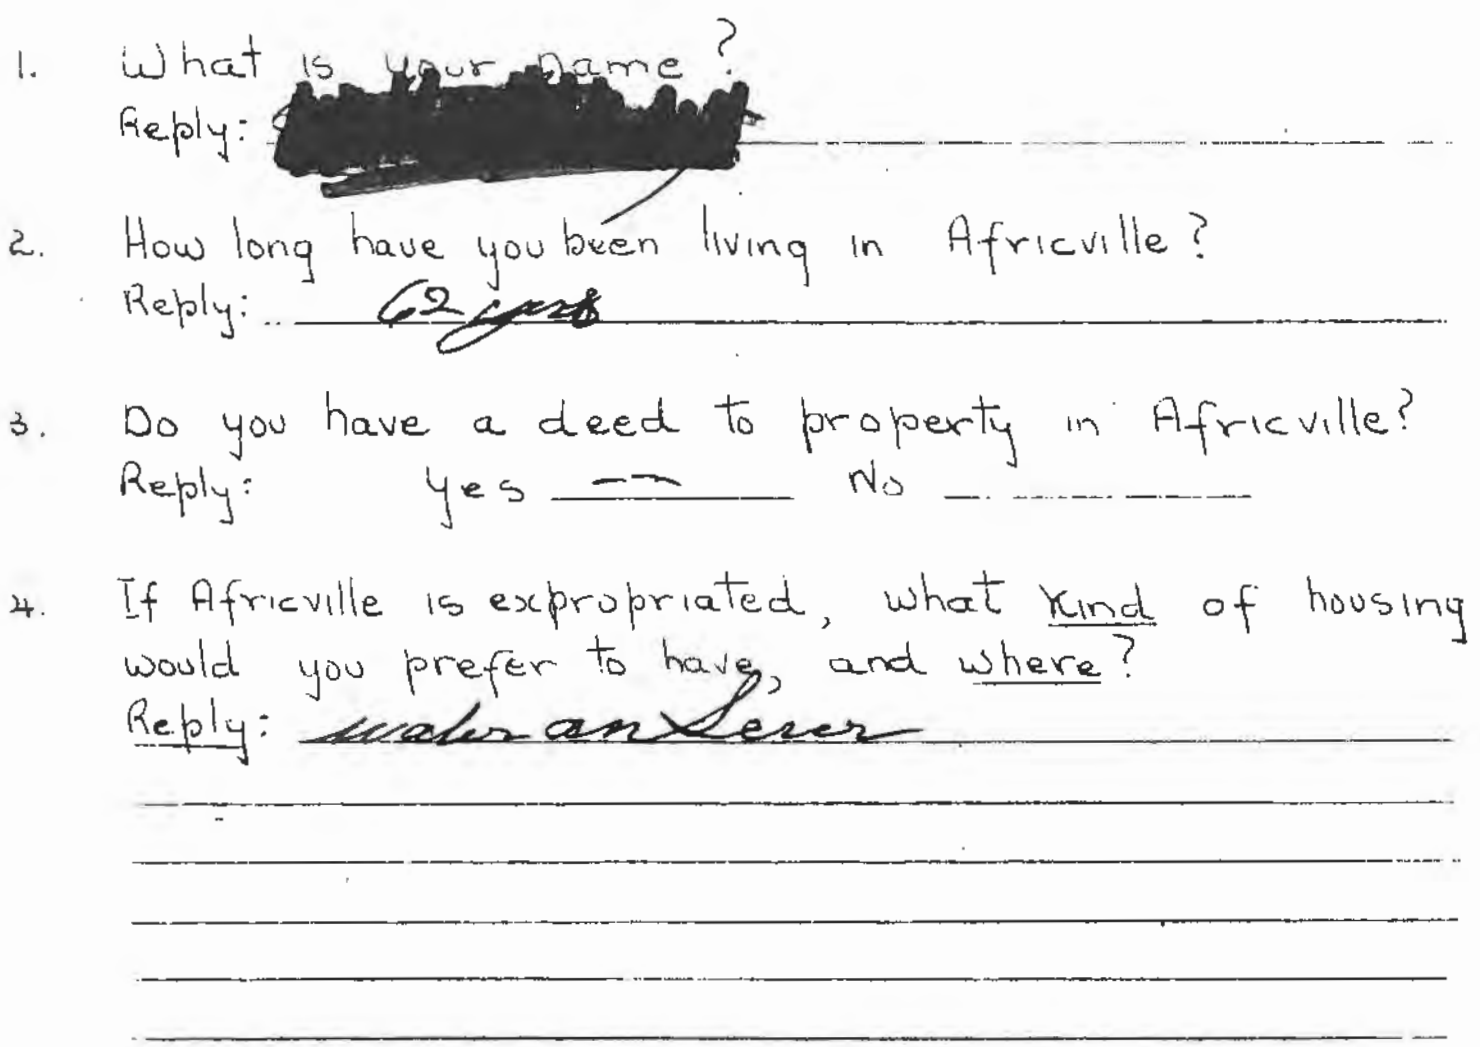 1. What is your name?
Reply:
2. How long have you been living in Africville?
Reply: 62 yrs
3. Do you have a deed to property in Africville?
Reply: Yes No
4. If Africville is expropriated, what kind of housing
would you prefer to have, and where?
Reply: water an Serer